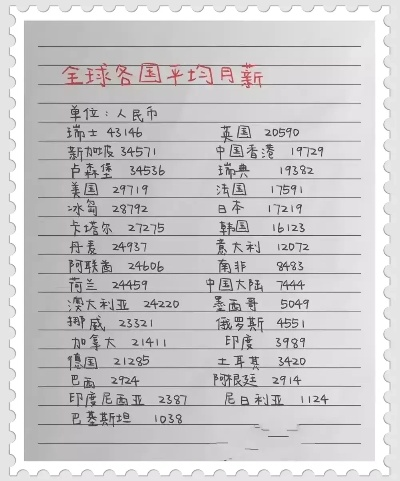 全球各国平均月薪
单位：人民币
瑞士 43146 英国 20590
新加坡 34571 中国香港 19729
卢森堡 34536 瑞典 19382
美国 29719 法国 17591
冰岛 28792 日本 17219
卡塔尔 27275 韩国 16123
丹麦 24937 意大利 12072
阿联酋 24606 南非 8483
荷兰 24459 中国大陆 7444
澳大利亚 24220 墨西哥 5049
挪威 23321 俄罗斯 4551
加拿大 21411 印度 3989
德国 21285 土耳其 3420
巴西 2924 阿根廷 2914
印度尼西亚 2387 尼日利亚 1124
巴基斯坦 1038